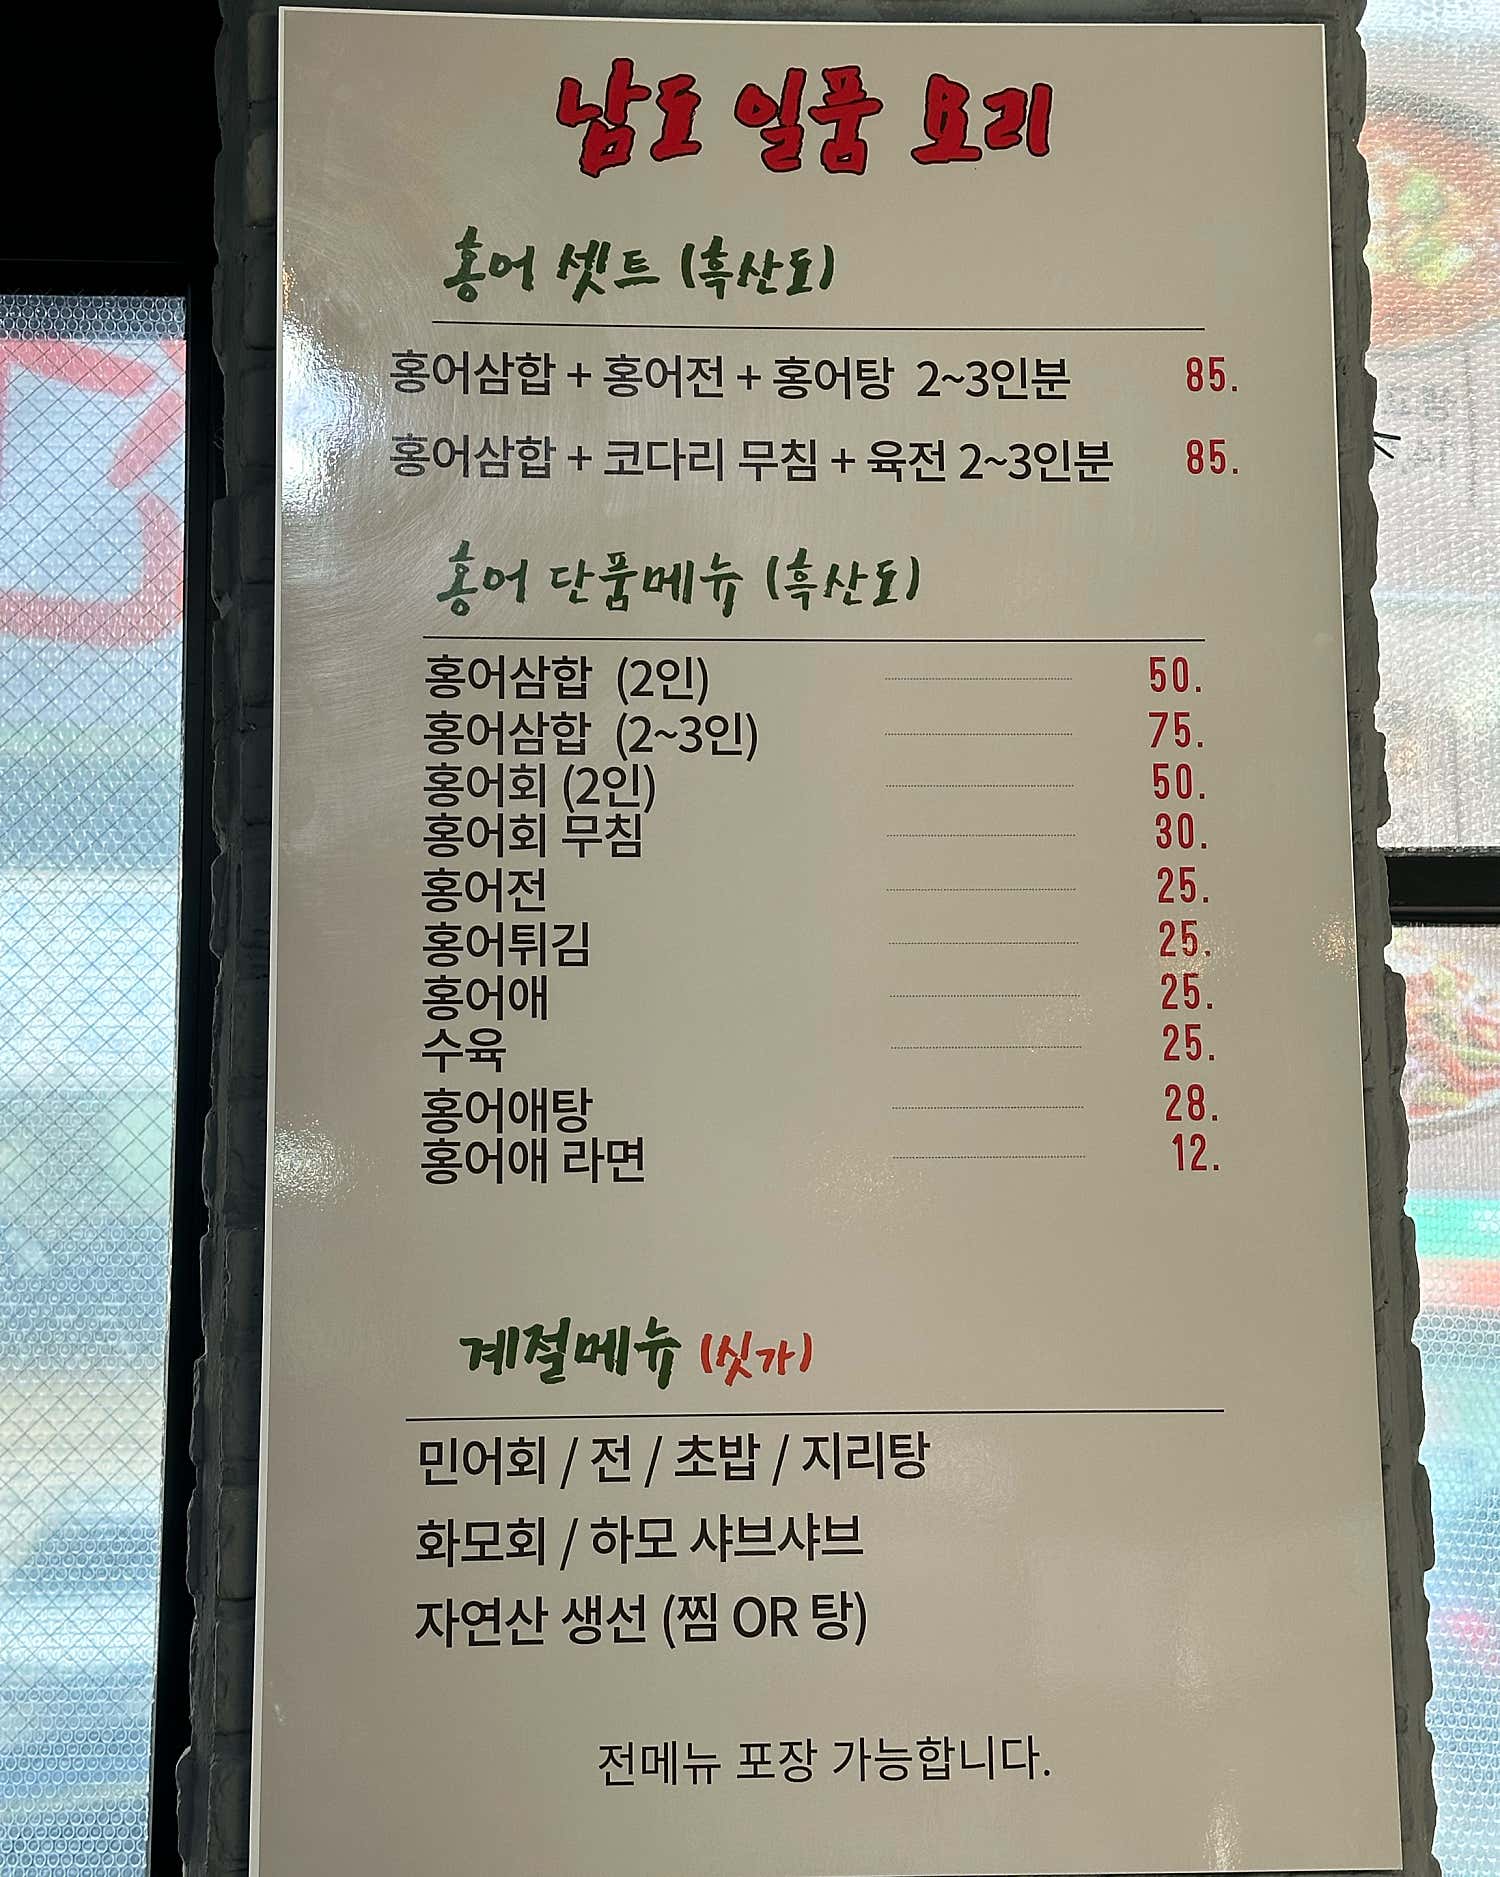 남도 일품 요리
홍어 셋트 (흑산도)
홍어삼합 + 홍어전 + 홍어탕 2~3인분 85.
홍어삼합 + 코다리 무침 + 육전 2~3인분 85.
홍어 단품메뉴 (흑산도)
홍어삼합 (2인) 50.
홍어삼합 (2~3인) 75.
홍어회 (2인) 50.
홍어회 무침 30.
홍어전 25.
홍어튀김 25.
홍어애 25.
수육 25.
홍어애탕 28.
홍어애 라면 12.
계절메뉴 (싯가)
민어회 / 전 / 초밥 / 지리탕
화모회 / 하모 샤브샤브
자연산 생선 (찜 OR 탕)
전메뉴 포장 가능합니다.